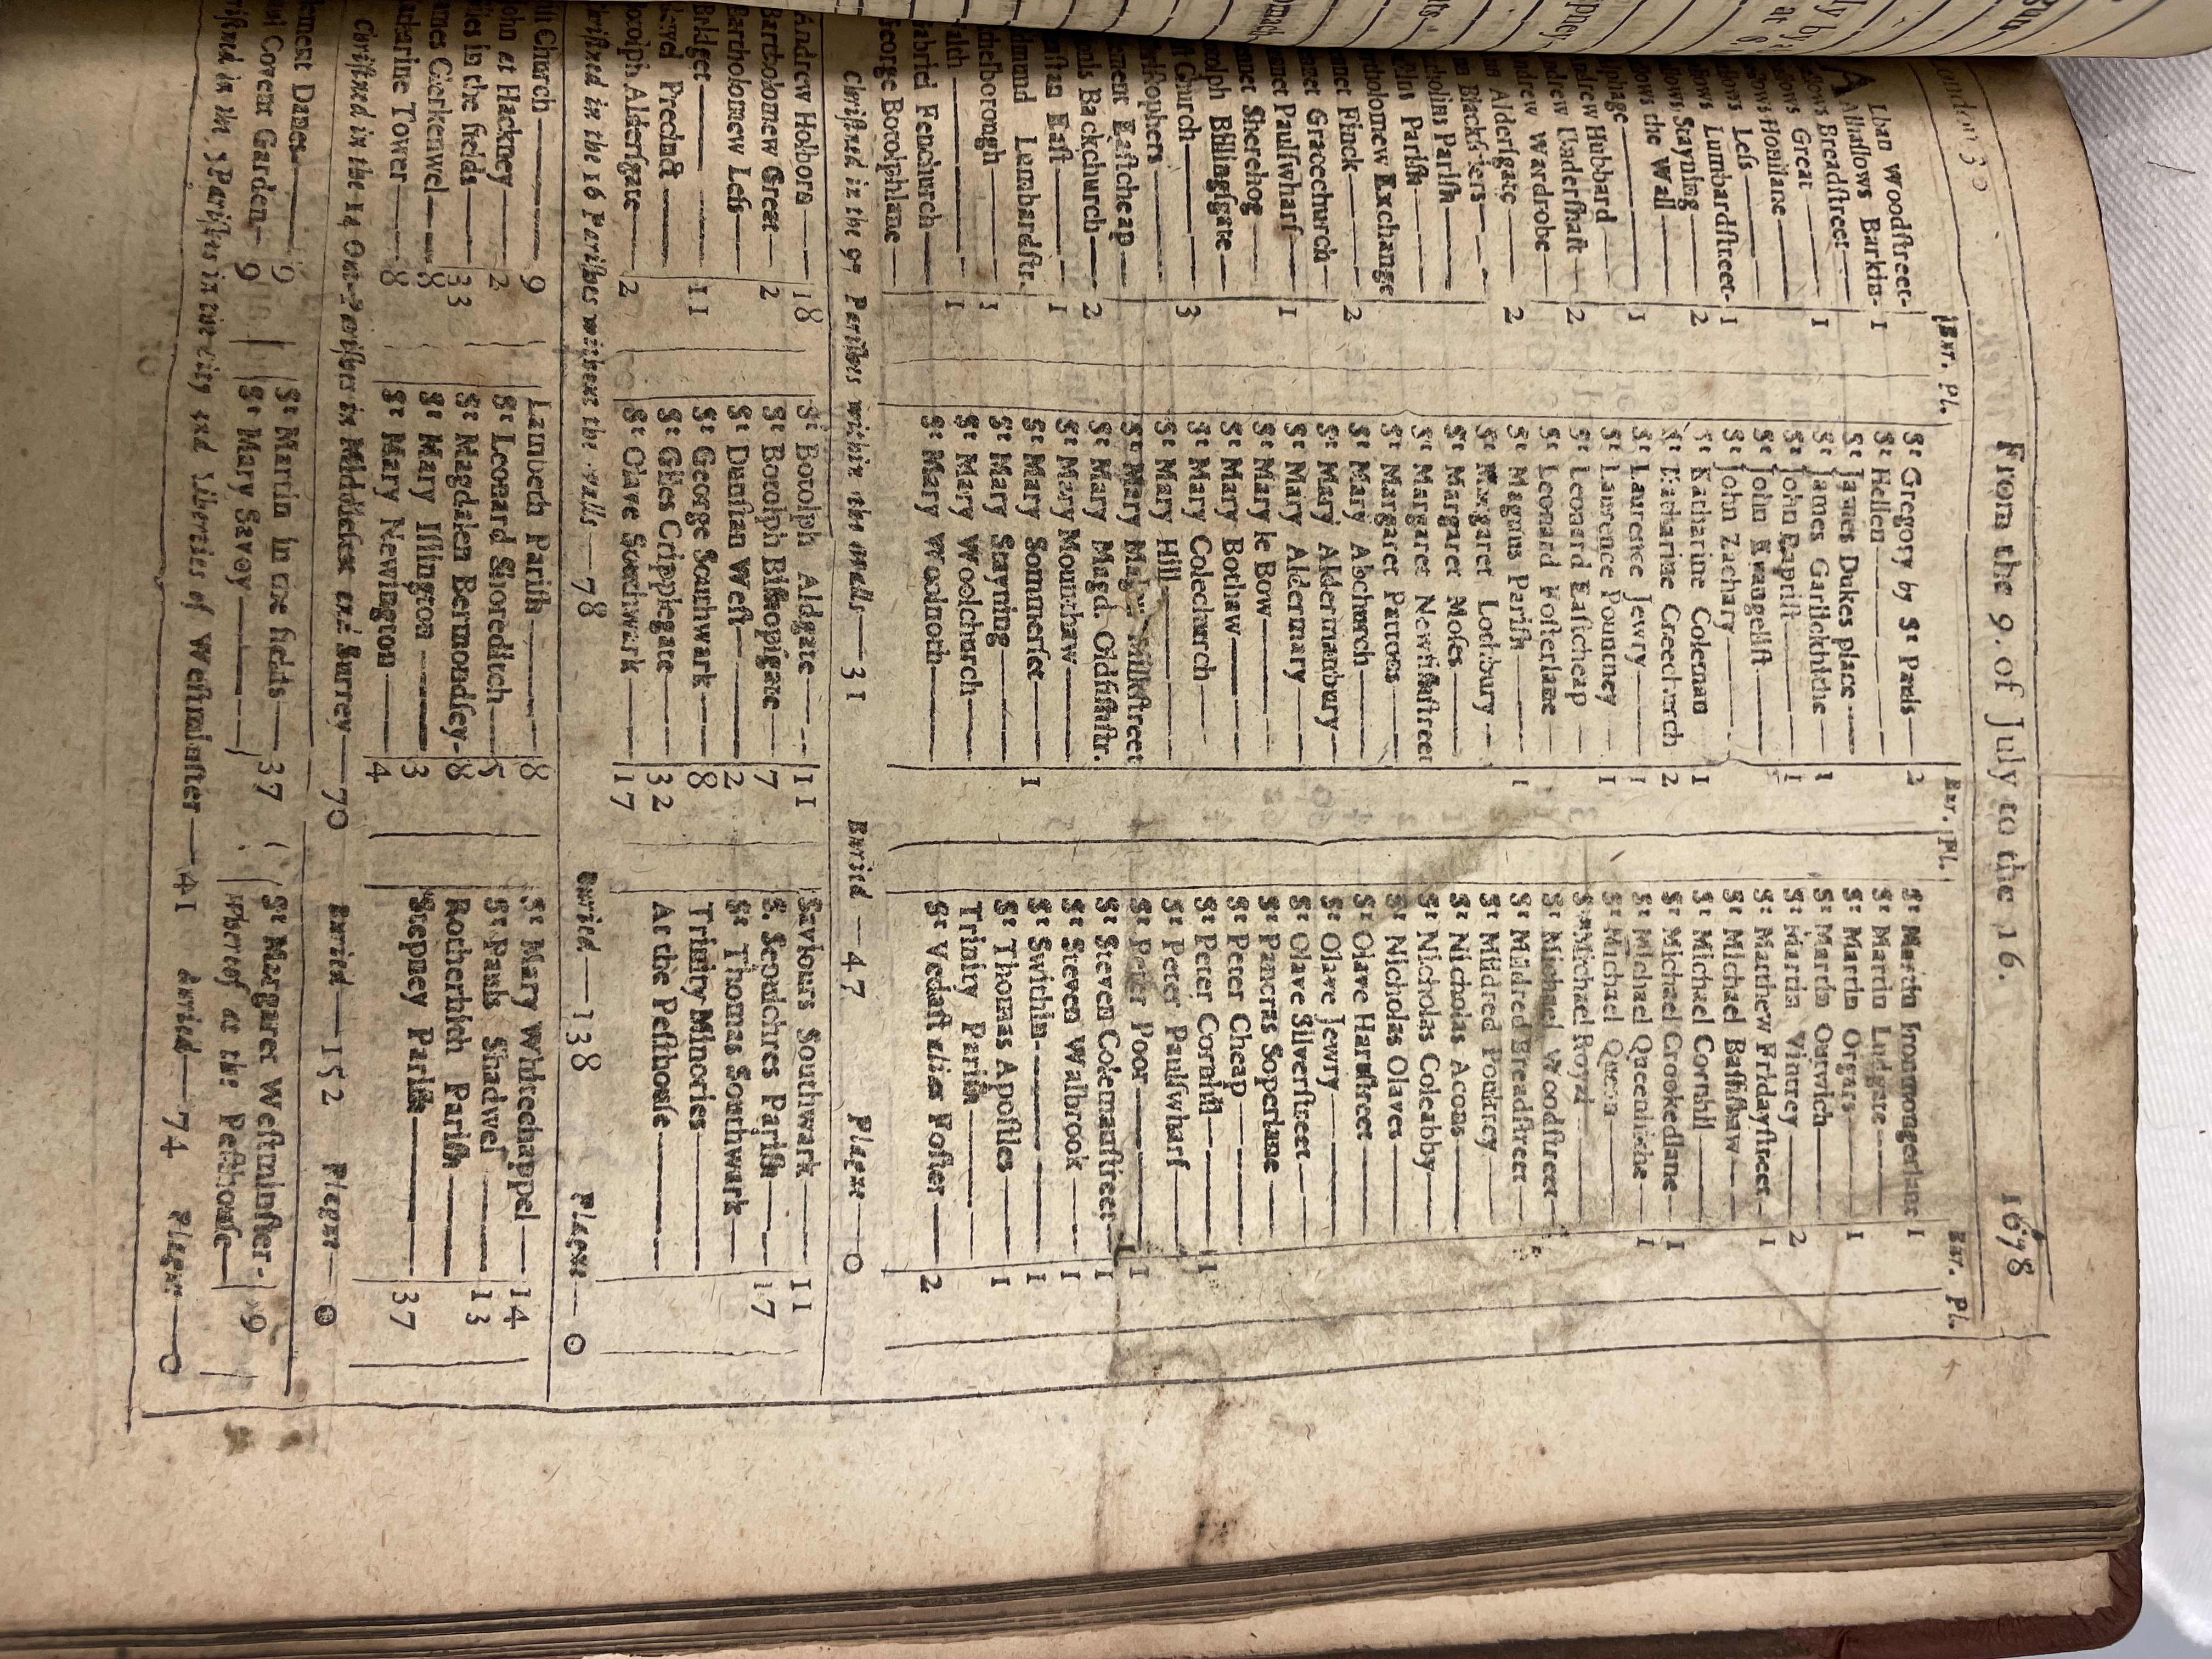 London 30 From the 9. of July to the 16. 1678
Bur. Pl. Bur. Pl. Bur. Pl.
Lban Woodstreet- St Gregory by St Pauls— 2 St Martin Ironmongerlane 1
Allhallows Barkin- 1 St Hellen— St Martin Ludgate—
Breadstreet— St James Dukes place— St Martin Orgars— 1
Great— 1 St James Garlickhithe— 1 St Martin Outwich—
Honilane— St John Baptist— 1 St Martin Vintrey— 2
Less— St John Evangelist— St Matthew Fridaystreet— 1
Lumbardstreet- 1 St John Zachary— St Michael Bassishaw—
Stayning— 2 St Katharine Coleman 1 St Michael Cornhil—
the Wall— St Katharine Creechurch 2 St Michael Crookedlane— 1
phage— 1 St Laurence Jewry— 1 St Michael Queenhithe— 1
Hubbard— St Laurence Pountney— 1 St Michael Quern—
Undershaft— 2 St Leonard Eastcheap— St Michael Royal—
Wardrobe— St Leonard Fosterlane— St Michael Woodstreet—
Aldersgate— 2 St Magnus Parish— 1 St Mildred Breadstreet—
Blackfriers— St Margaret Lothbury— St Mildred Poultrey—
Parish— St Margaret Moses— St Nicholas Acons—
Parish— St Margaret Newfishstreet St Nicholas Coleabby—
tholomew Exchange St Margaret Pattons— St Nicholas Olaves—
net Finck— 2 St Mary Abchurch— St Olave Hartstreet—
net Gracechurch— St Mary Aldermanbury— St Olave Jewry—
net Paulswharf— 1 St Mary Aldermary— St Olave Silverstreet—
net Sherehog— St Mary le Bow— St Pancras Soperlane—
tolph Billingsgate— St Mary Bothaw— St Peter Cheap—
Church— 3 St Mary Colechurch— St Peter Cornhil— 1
istophers— St Mary Hill— St Peter Paulswharf—
ement Eastcheap— St Mary Milkstreet St Peter Poor— 1
Backchurch— 2 St Mary Magd. Oldfishstr. St Steven Colemanstreet— 1
stan East— 1 St Mary Mounthaw— St Steven Walbrook— 1
dmund Lumbardstr. St Mary Sommerset— 1 St Swithin— 1
chelborough— 1 St Mary Stayning— St Thomas Apostles— 1
aith— 1 St Mary Woolchurch— Trinity Parish—
abriel Fenchurch— St Mary Woolnoth— St Vedast alias Foster— 2
George Botolphlane—
Christned in the 97 Parishes within the walls—31 Buried—47 Plague—0
Andrew Holborn— 18 St Botolph Aldgate— 11 Saviours Southwark— 11
Bartholomew Great— 2 St Botolph Bishopsgate— 7 S. Sepulchres Parish— 17
Bartholomew Less— St Dunstan West— 2 St Thomas Southwark—
Bridget— 11 St George Southwark— 8 Trinity Minories—
Precinct— St Giles Cripplegate— 32 At the Pesthouse—
otolph Aldersgate— 2 St Olave Southwark— 17
hristned in the 16 Parishes without the walls—78 Buried—138 Plague—0
Church— 9 Lambeth Parish— 8 St Mary Whitechappel— 14
John at Hackney— 2 St Leonard Shoreditch— 5 St Pauls Shadwel— 13
les in the fields— 33 St Magdalen Bermondsey- 8 Rotherhith Parish—
ames Clerkenwel— 8 St Mary Islington— 3 Stepney Parish— 37
atharine Tower— 8 St Mary Newington— 4
Christned in the 14 Out-Parishes in Middlesex and Surrey—70 Buried—152 Plague—0
lement Danes— 9 St Martin in the fields—37 St Margaret Westminster- 19
Covent Garden— 9 St Mary Savoy— Whereof at the Pesthouse—
ristned in the 5 Parishes in the City and Liberties of Westminster—41 Buried—74 Plague—0